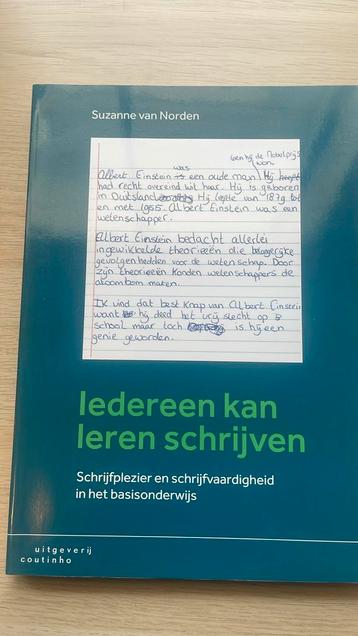 Suzanne van Norden
toen hij de Nobelprijs
was won.
Albert Einstein is een oude man. Hij heeft
had recht overeind wit haar. Hij is geboren
in Duitsland. Hij leefde van 1879 tot
en met 1955. Albert Einstein was een
wetenschapper.
Albert Einstein bedacht allerlei
ingewikkelde theorieeën die belangrijke
gevolgen hadden voor de wetenschap. Door
zijn theorieeën konden wetenschappers de
atoombom maken.
Ik vind dat best knap van Albert Einstein
want hij deed het vrij slecht op
school maar toch is hij een
genie geworden.
Iedereen kan
leren schrijven
Schrijfplezier en schrijfvaardigheid
in het basisonderwijs
uitgeverij
coutinho